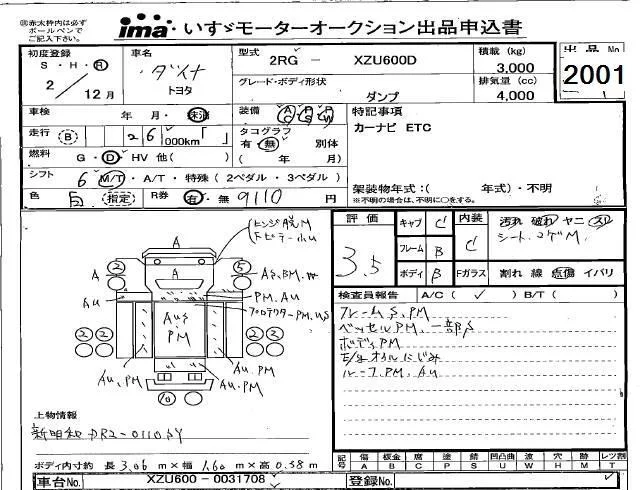 ㊟赤太枠内は必ずボールペンでご記入下さい。
ima いすゞモーターオークション出品申込書
初度登録 S・H・R 2/12月
車名 ダイナ トヨタ
型式 2RG - XZU600D
積載 (kg) 3,000
出品No 2001
グレード・ボディ形状 ダンプ
排気量 (cc) 4,000
車検 年 月・未済
装備 A/C P/S P/W
特記事項
カーナビ ETC
走行 B 26,000km「 」
タコグラフ 有・無 別体
( 年 月)
燃料 G・D・HV 他( )
シフト 6 M/T・A/T・特殊 (2ペダル・3ペダル)
架装物年式:( 年式)・不明
※不明の場合は、不明に○をする。
色 白 (指定) R券 有・無 9110 円
評価 3.5
キャブ C 内装 C
フレーム B
ボディ B Fガラス
汚れ 破れ ヤニ スリ
シート コゲM
割れ 線 点傷 イバリ
検査員報告 A/C (✓) B/T ( )
フレームS,PM
ベッセルPM,一部S
ボディPM
E/gオイルにじみ
ルーフPM,Au
A
A
2
5
A
Au
PM,Au
プロテクターPM,US
AuS
PM
2 2
2 2
Au,PM
Au,PM
10
上物情報
新明和 DR2-0110SY
ボディ内寸約 長 3.06 m×幅 1.60 m×高 0.38 m
記号 傷A 板金B 腐C 塗P 錆S 凹凸曲U 波W 穴H 跡M レツ割T
車台No. XZU600-0031708
登録No.